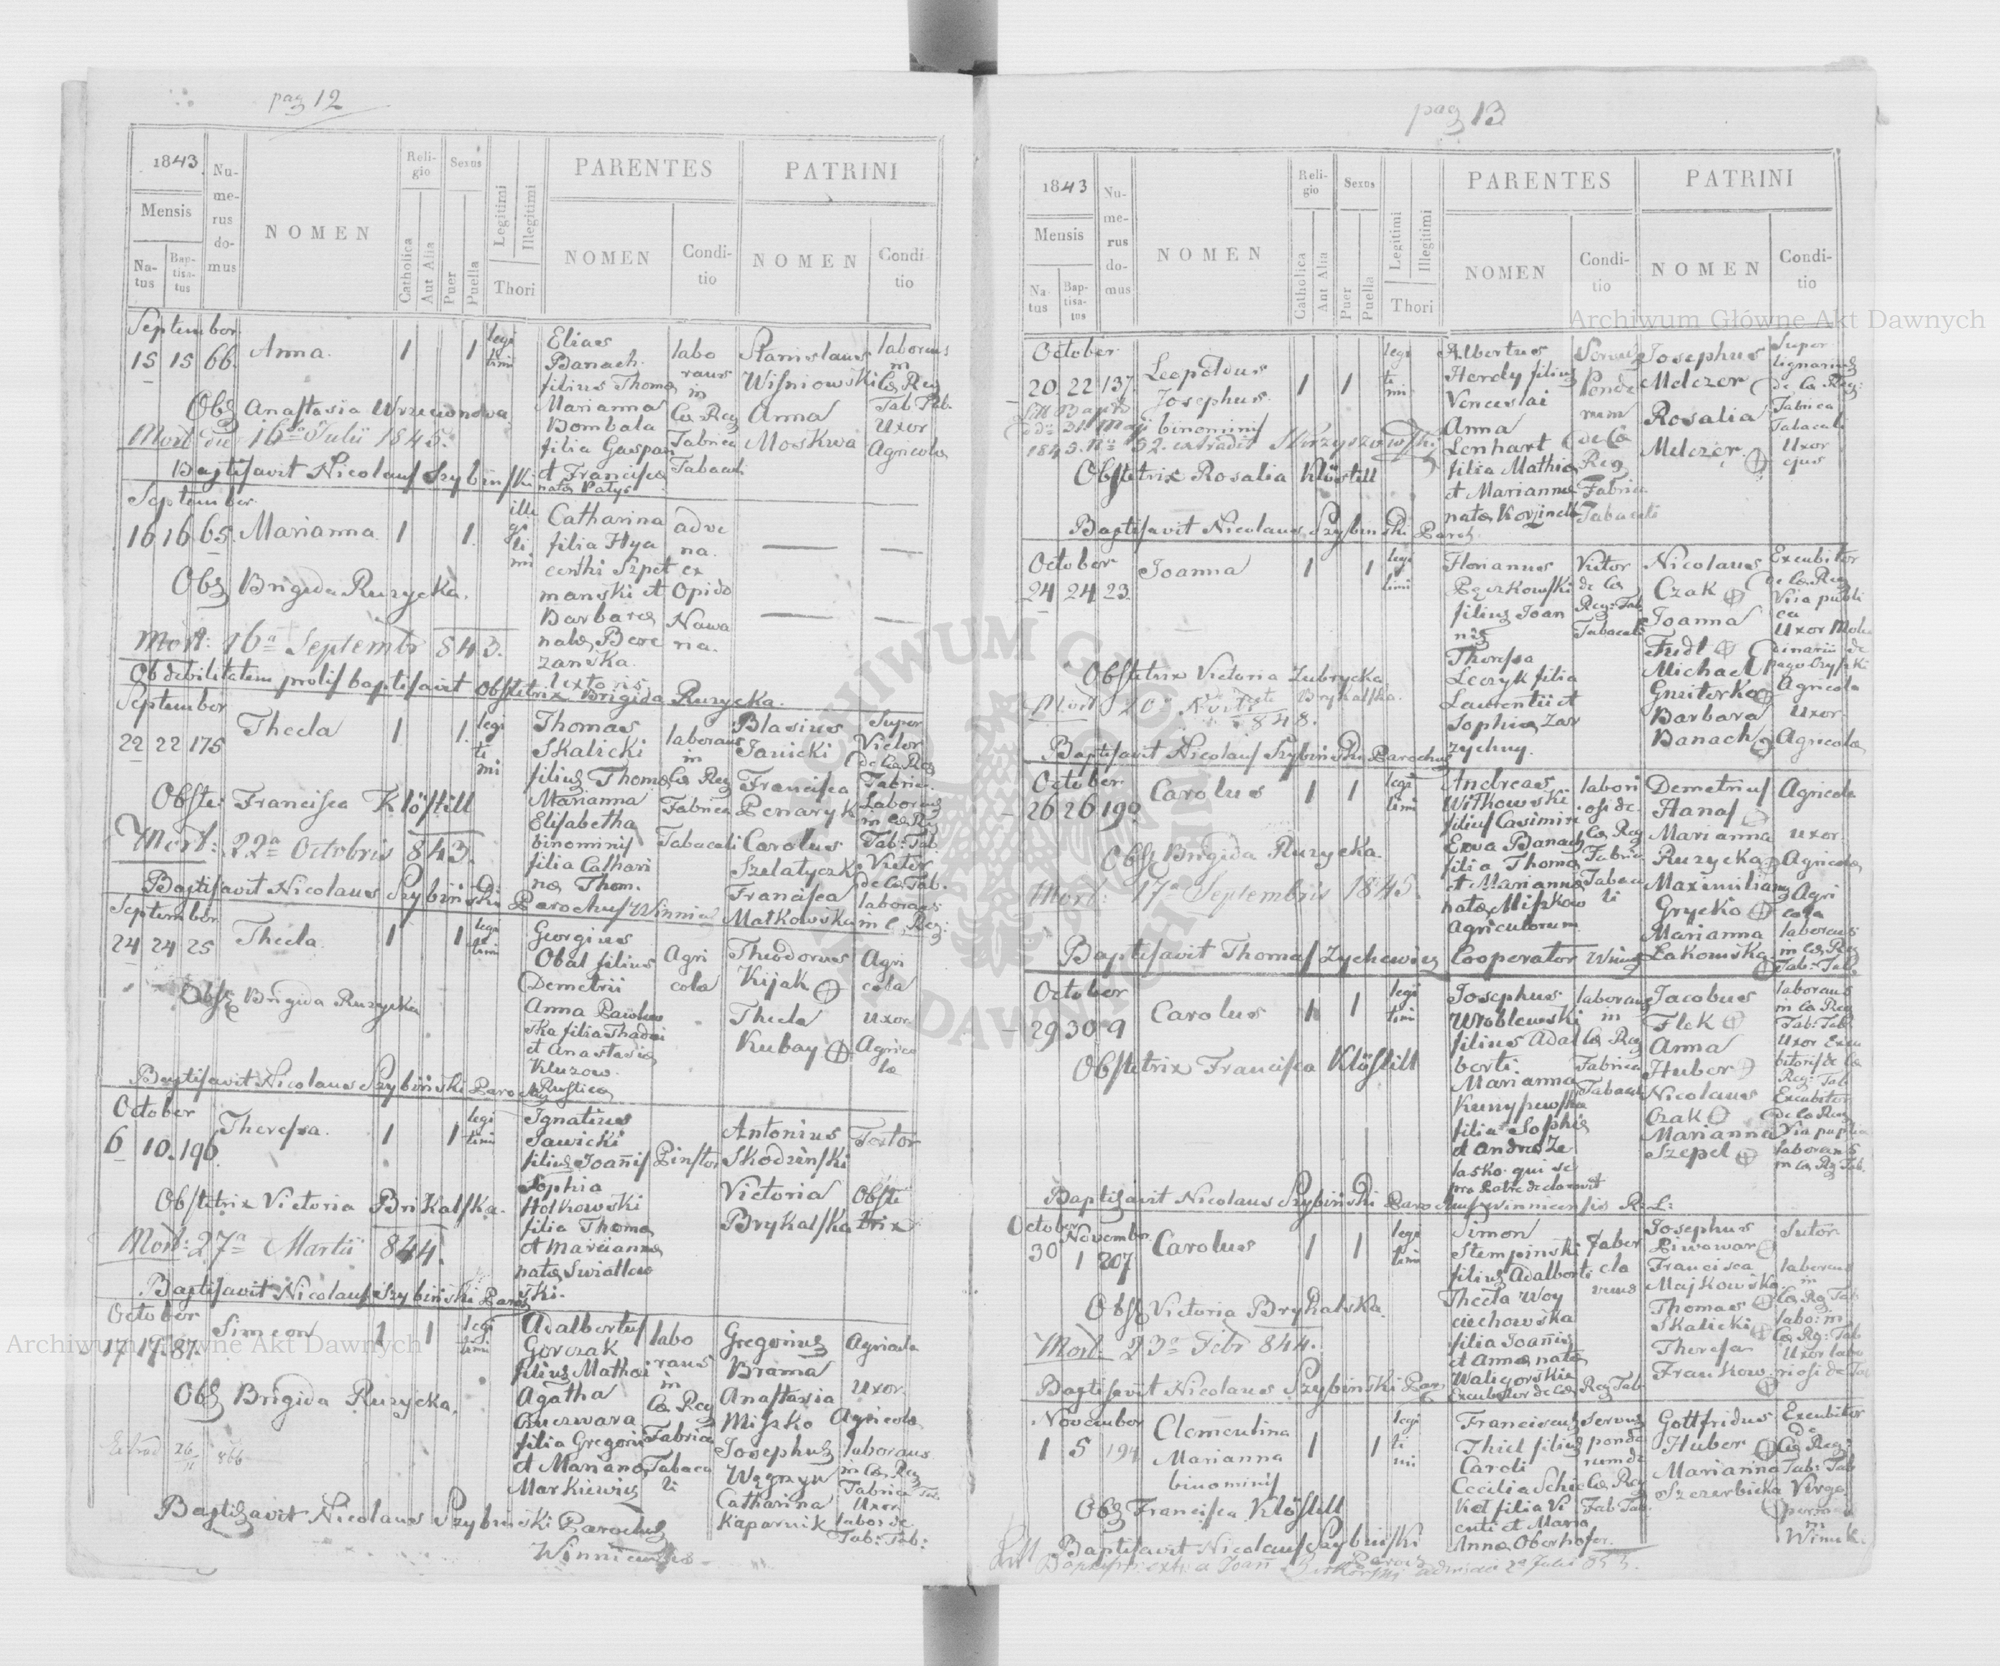 pag 12
1843.
Mensis
Na-
tus
Bap-
tisa-
tus
Nu-
me-
rus
do-
mus
NOMEN
Reli-
gio
Catholica
Aut Alia
Sexus
Puer
Puella
Legitimi
Illegitimi
Thori
PARENTES
NOMEN
Condi-
tio
PATRINI
NOMEN
Condi-
tio
September
15 15 66. Anna. 1 1
legi
timi
Elias
Banach
filius Thomæ
Marianna
Bombala
filia Gaspari
et Francisca
nata Patys
labo
rans
in
Cæs. Reg
Fabrica
Tabacali
Stanislaus
Wiśniowski
Anna
Moskwa
laborans
in
Cæs. Reg
Fab. Tab.
Uxor
Agricolæ
Obs Anastasia
Mort die 16ta Julii 1845.
Baptisavit Nicolaus Szybiński
September
16 16 65. Marianna 1 1.
ille
gi
ti
mi
Catharina
filia Hya
cinthi Szpet
manski et
Barbaræ
natæ Bere
zanska
textoris
adve
na.
ex
Opido
Nawa
ria.
Obs Brigida Ruzycka.
Mort: 16a Septembr 843.
Ob debilitatem prolis baptisavit Obstetrix Brigida Ruzycka.
September
22 22 175 Thecla 1 1.
legi
ti
mi
Thomas
Skalicki
filius Thomæ
Marianna
Elisabetha
binominis
filia Cathari
næ Thom.
laborans
in
Cæs Reg
Fabrica
Tabacali
Blasius
Janicki
Francisca
Penaryk
Carolus
Szelatycz
Francisca
Matkowska
Super
Victor
de Cæs Reg
Fabric.
Laborans
in Cæs Rg
Tab. Tab.
Victor
de Cæs Tab.
laborans
in C. Reg:
Obste: Francisca Klöstill
Mort: 22a Octobris 843.
Baptisavit Nicolaus Szybiński Parochus Winnic
September
24 24 25 Thecla 1 1
legi
timi
Georgius
Obal filius
Demetrii
Anna
ska filia Thadæi
et Anastasiæ
Kluzow.
Rustica
Agri
cola
Theodorus
Kijak
Thecla
Kubay
Agri
cola
uxor
Agrico
la
Obst Brigida Ruzycka
Baptisavit Nicolaus Szybiński Paroch
October
6 10. 196. Theressa. 1 1
legi
timi
Ignatius
Sawicki
filius Joañis
Sophia
Hotkowski
filia Thomæ
et Mariannæ
natæ Swiatłow
ski.
Pinstor
Antonius
Skodzinski
Victoria
Brykalska
Textor
Obste
trix
Obstetrix Victoria Brikalska.
Mort: 27a Martii 844.
Baptisavit Nicolaus Szybiński Paroch
October
17 17. 87. Simeon 1 1
legi
timi
Adalbertus
Gorczak
filius Mathæi
Agatha
filia Gregorii
et Mariannæ
Markiewicz
labo
rans
in
Cæs Reg
Fabrica
Tabaca
li
Gregorius
Brama
Anastasia
Miszko
Josephus
Węgrzyn
Catharina
Kaparnik
Agricola
Uxor
Agricolæ
laborans
in Cæs Reg
Fabrica Tab.
Uxor
labor de
Tab: Tab:
Obs Brigida Ruzycka.
Extrad 26/11 866
Baptizavit Nicolaus Szybiński Parochus
Winniciensis
pag 13
1843
Mensis
Na-
tus
Bap-
tisa-
tus
Nu-
me-
rus
do-
mus
NOMEN
Reli-
gio
Catholica
Aut Alia
Sexus
Puer
Puella
Legitimi
Illegitimi
Thori
PARENTES
NOMEN
Condi-
tio
PATRINI
NOMEN
Condi-
tio
October
20. 22 137. Leopoldus
Josephus. 1 1
binominis
legi
ti
mi
Albertus
Herdy filius
Venceslai
Anna
Lenhart
filia Mathiæ
et Mariannæ
natæ Korzinek
Servus
Ponde
rum
de Cæs
Reg
Fabrica
Tabacali
Josephus
Melczer
Rosalia
Melczer.
Super
lignarius
de Cæ. Reg:
Fabrica
Tabacali
Uxor
ejus
Obstetrix Rosalia Klöstill
Baptisavit Nicolaus Szybiński Paroch
October
24 24 23. Joanna 1 1
legi
timi
Florianus
filius Joan
nis
Theressa
Leczyk filia
Laurentii et
Sophiæ Zar
zychny.
Victor
de Cæs
Reg: Tab
Tabacali
Nicolaus
Czak
Joanna
Fridl
Michael
Gnziterko
Barbara
Banach
Excubitor
de Cæ Reg
Via publi
ca
Uxor Mola
dinarii de
pago Czyszki
Agricola
uxor
Agricola
Obstetrix Victoria Zubrycka
Brykalska.
Baptisavit Nicolaus Szybiński Parochus
October
26 26 190 Carolus 1 1
legi
timi
Andreas
Witkowski
filius Casimiri
Ewa Banach
filia Thoma
et Marianna
natæ Miszkow
agricolorum
labori
osi de
Cæs Reg
Fabrica
Tabaca
li
Demetrius
Hanas
Marianna
Ruzycka
Maximilianus
Grycko
Marianna
Lakomska
Agricola
uxor
Agricola
Agri
cola
laborans
in Cæs Reg
Tab: Tab.
Obs Brigida Ruzycka.
Mort: 17a Septembris 1845.
Baptisavit Thomas Zychewicz Cooperator Winn
October
29 30 9 Carolus 1 1
legi
timi
Josephus
Wroblewski
filius Adal
berti
Marianna
filia Sophiæ
et Andreæ Ze
lasko qui se
pro Patre declaravit
laborans
in
Cæs Reg
Fabrica
Tabacali
Jacobus
Flek
Anna
Huber
Nicolaus
Czak
Marianna
Szepel
laborans
in Cæ Reg
Tab: Tab
Uxor Excu
bitoris de Cæ
Reg: Tab
Excubitor
de Cæ Reg
Via publica
laborans
in Cæ Rg Tab.
Obstetrix Francisca Klöstill
Baptizavit Nicolaus Szybiński Parochus Winnicensis R. L:
October November
30 1 207 Carolus 1 1
legi
timi
Simon
Stempinski
filius Adalberti
Thecla Woy
ciechowska
filia Joañis
et Annæ natæ
Waligorskie
Excubitor de Cæs Reg Tab
Faber
cla
vius
Josephus
Piwowar
Francisca
Majkowska
Thomas
Skalicki
Theresa
Frankow
Sutor
laborans
in
Cæ Rg Tab
labo: in
Cæ Rg: Tab
Uxor labo
riosi de Tab
Obs Victoria Brykalska
Mort: 23a Febr 844.
Baptisavit Nicolaus Szybinski Par
November
1 5 194 Clementina
Marianna
binominis 1 1
legi
ti
mi
Franciscus
Thiel filius
Caroli
Cecilia Schic
ket filia Vi
centi et Maria
Anna Oberhofer.
servus
ponde
rum de
Cæs Reg
Fab Tab
Gottfridus
Huber
Marianna
Szczerbicka
Excubitor
de
Cæs Reg:
Tab: Tab
Virgo
in
Winnik.
Obs Francisca Klöstill
Baptisavit Nicolaus Szybiński
Paroch
Archiwum Główne Akt Dawnych
Archiwum Główne Akt Dawnych
ARCHIWUM GŁÓWNE AKT DAWNYCH